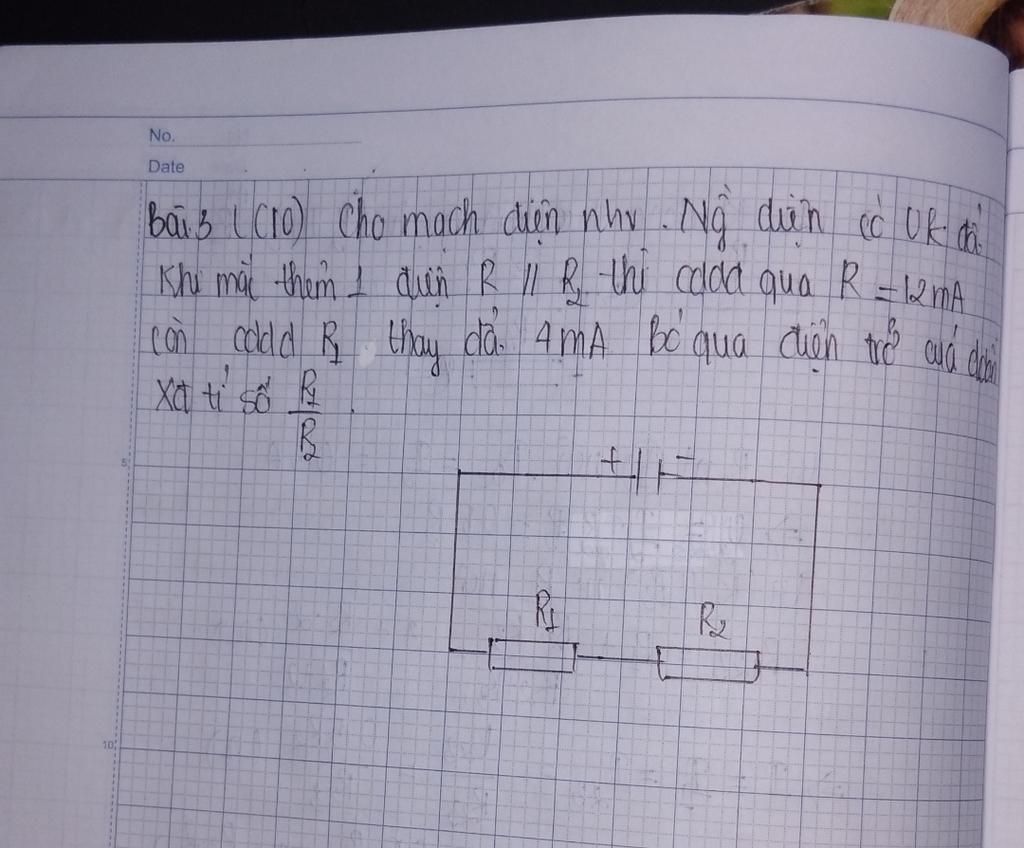 No.
Date
Bài 3 (C10) Cho mạch điện như . Ng̀ điện có UK đổi
Khi mắc thêm 1 điện R // R2 thì cdđđ qua R = 12mA
còn cdđđ R1 thay đổi 4mA Bỏ qua điện trở
Xđ tỉ số R1/R2.
+ -
5
R1
R2
10